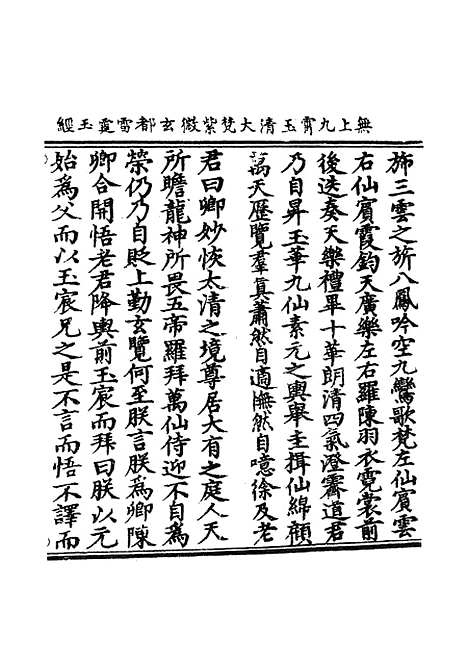 無上九霄玉清大梵紫微玄都雷霆玉經
旆三雲之旂八鳳吟空九鸞歌梵左仙賓雲
右仙賓霞鈞天廣樂左右羅陳羽衣霓裳前
後迭奏天樂禮畢十華朗清四氣澄霽道君
乃自昇玉華九仙素元之輿舉主揖仙綿顧
萬天歷覽羣真蕭然自適憮然自噫徐及老
君曰卿妙恢太清之境尊居大有之庭人天
所瞻龍神所畏五帝羅拜萬仙侍迎不自為
榮仍乃自貶上勤玄覽何至朕言朕為卿陳
卿合開悟老君降輿前玉宸而拜曰朕以元
始為父而以玉宸兄之是不言而悟不譯而